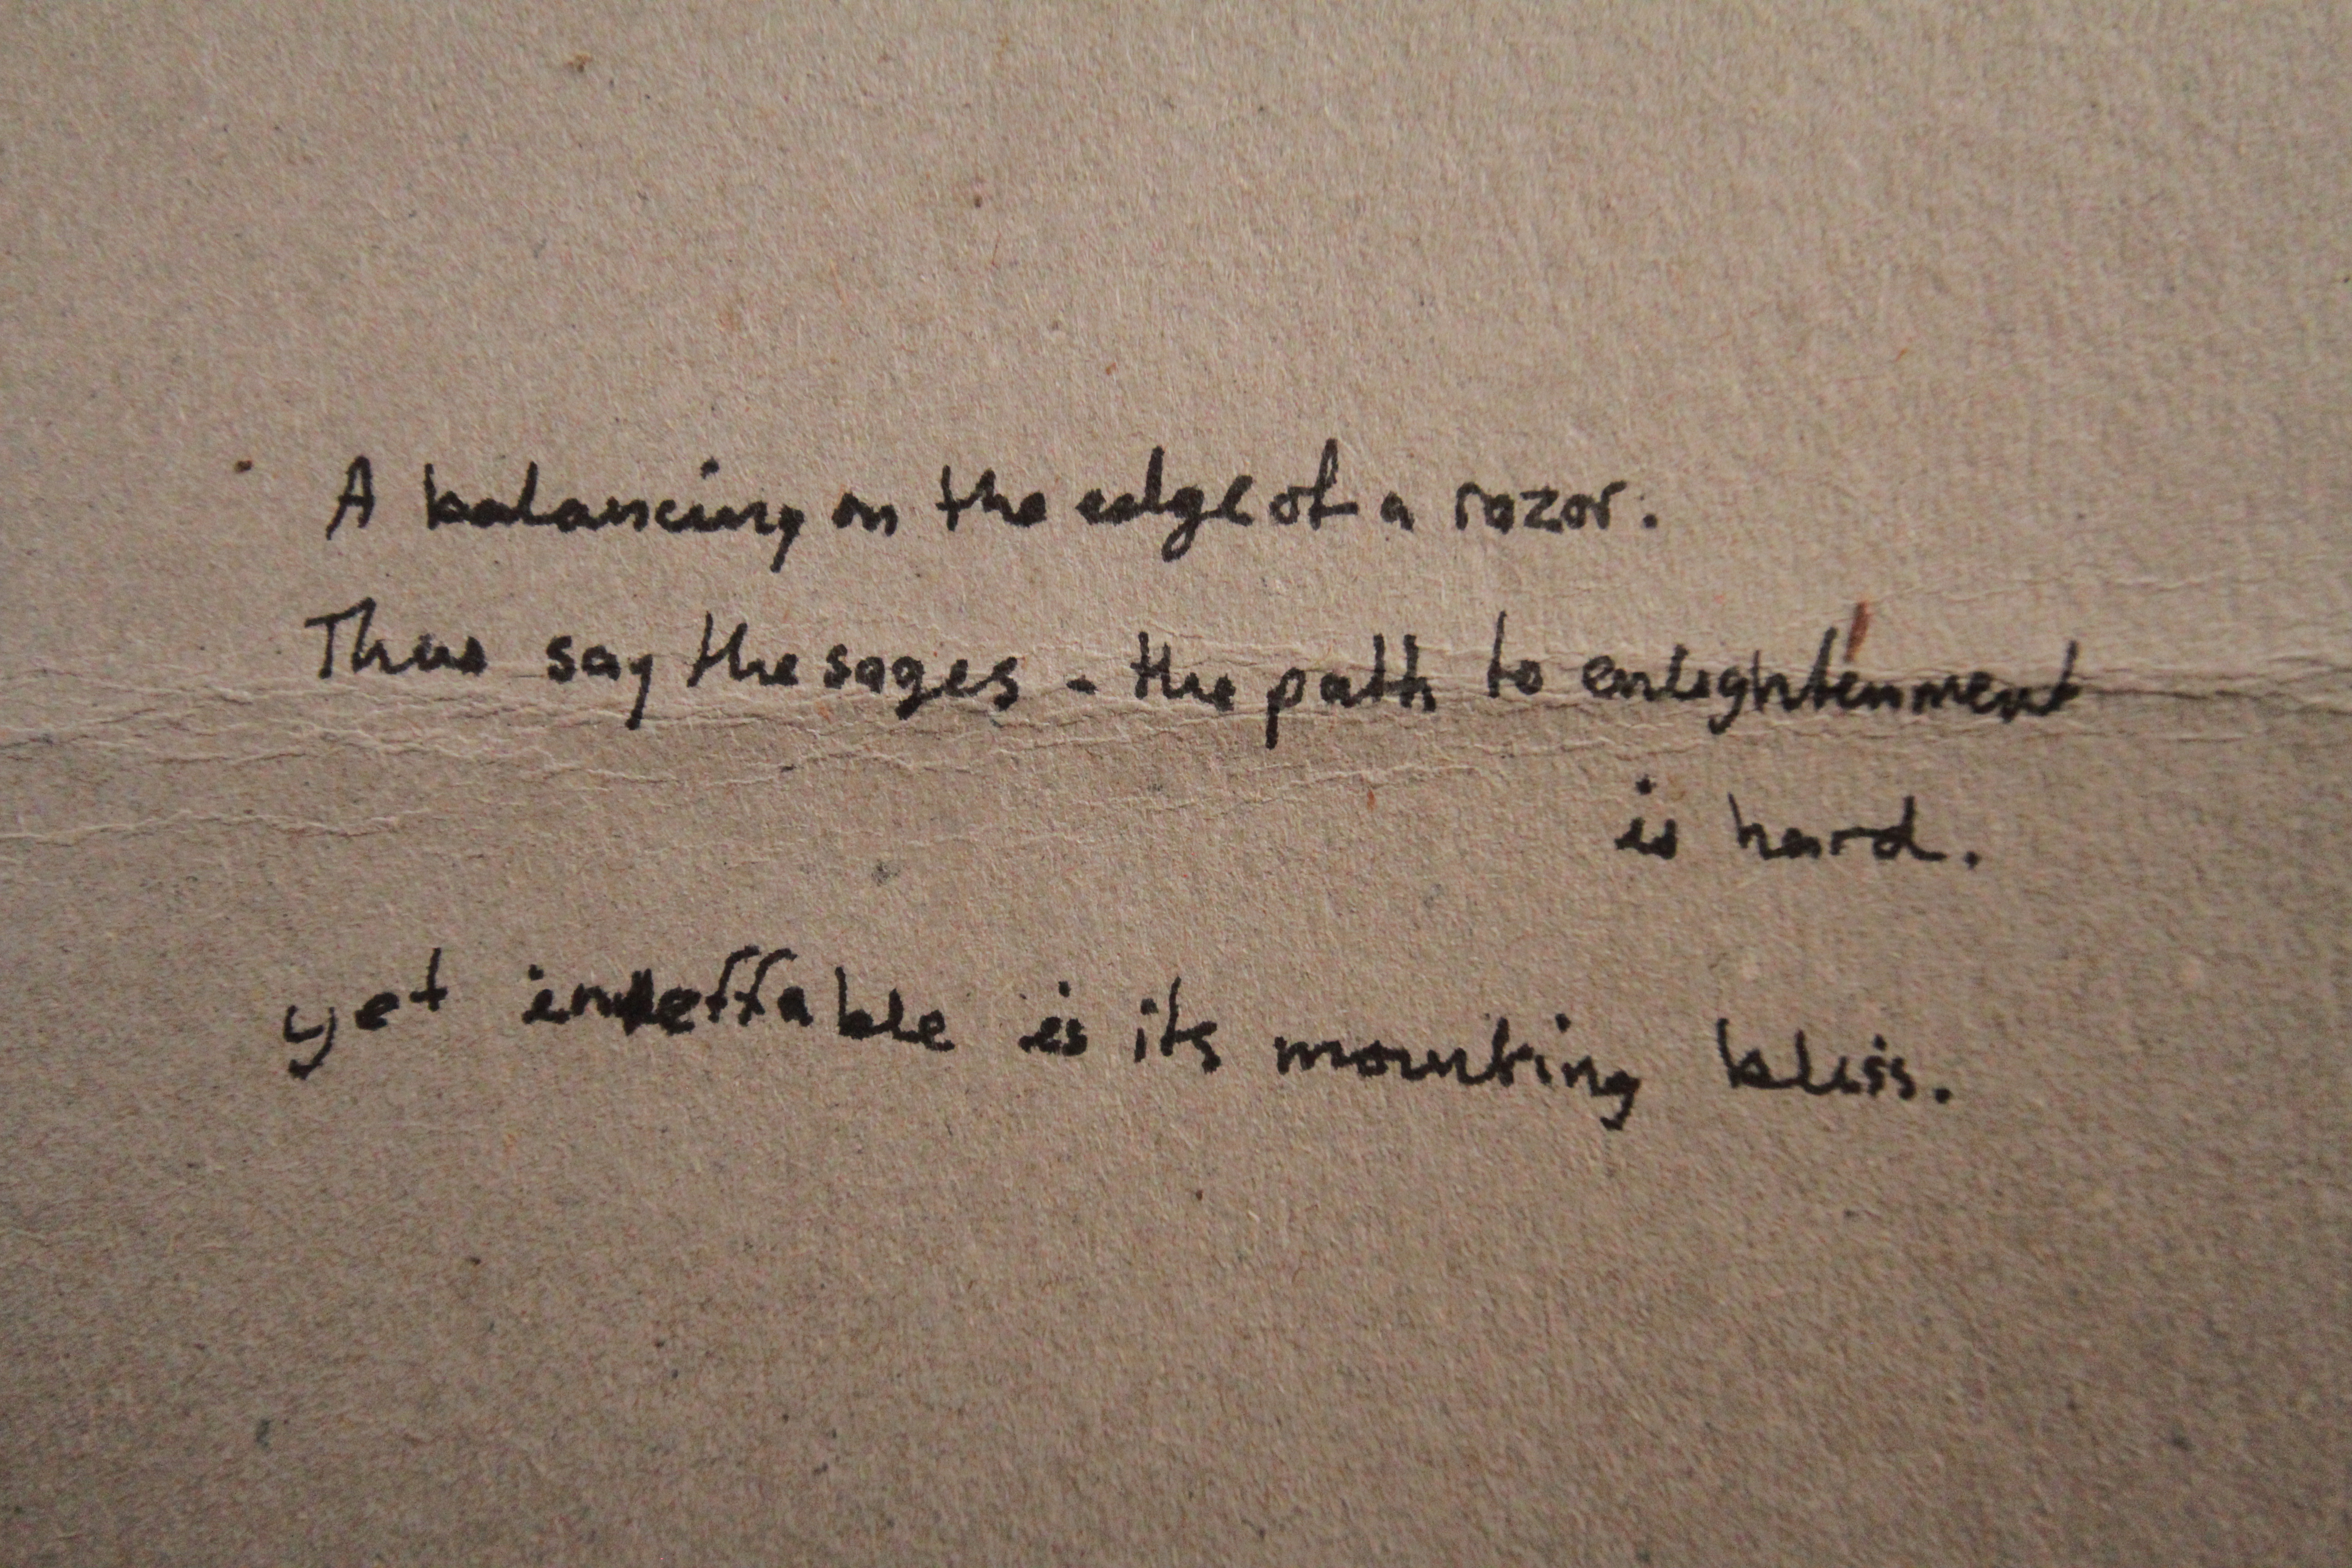 A balancing on the edge of a razor.
Thus say the sages - the path to enlightenment
is hard.
yet ineffable is its mounting bliss.